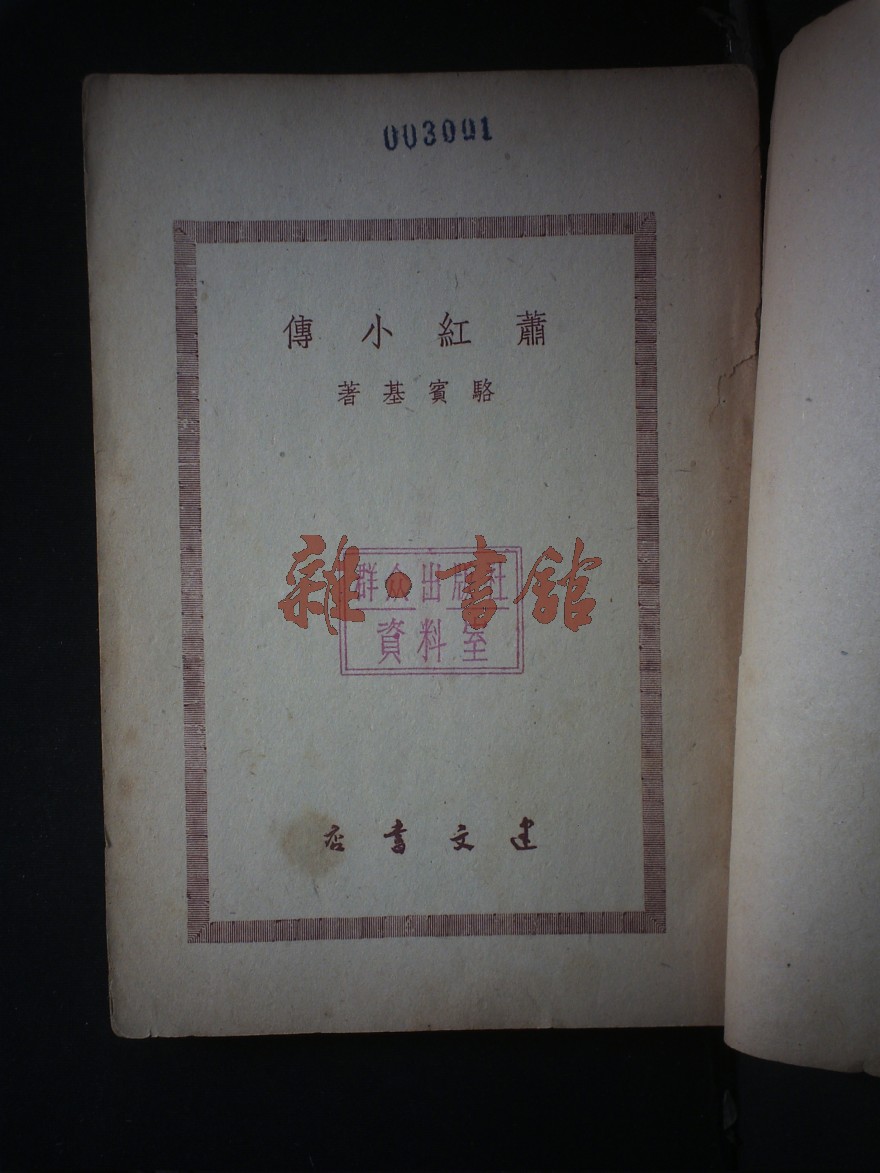 003001
蕭紅小傳
駱賓基著
雜·書館
群众出版社
資料室
建文書店